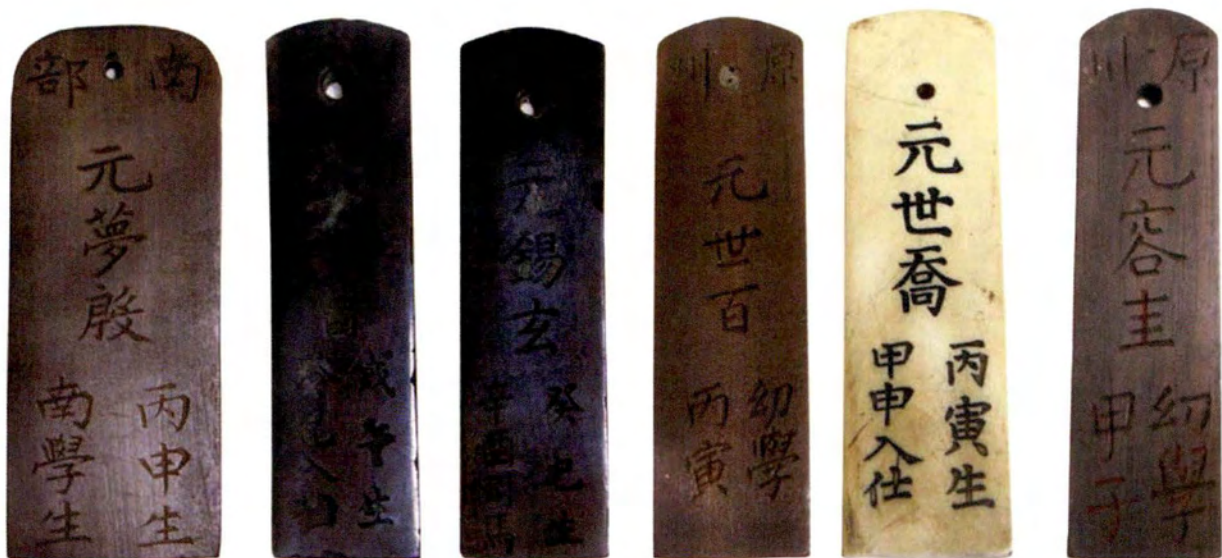 南部
元夢殷
丙申生
南學生
生
入
元錫玄
癸巳生
司馬
原州
元世百
幼學
丙寅
元世喬
丙寅生
甲申入仕
原州
元容圭
幼學
甲子